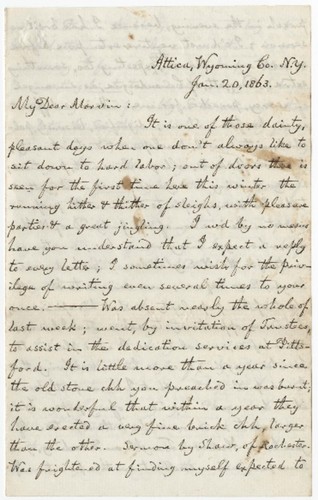 Attica, Wyoming Co. N.Y.
Jan. 20, 1863.
My Dear Marvin:
It is one of those dainty,
pleasant days when one don't always like to
sit down to hard labor; out of doors there is
seen for the first time here this winter the
running hither & thither of sleighs, with pleasure
parties & a great jingling. I wd by no means
have you understand that I expect a reply
to every letter; I sometimes wish for the priv-
ilege of writing even several times to your
once. — Was absent nearly the whole of
last week; went, by invitation of Trustees,
to assist in the dedication services at Pitts-
ford. It is little more than a year since
the old stone chh you preached in was burnt;
it is wonderful that within a year they
have erected a very fine brick chh, larger
than the other. Sermon by Shaw, of Rochester.
Was frightened at finding myself expected to